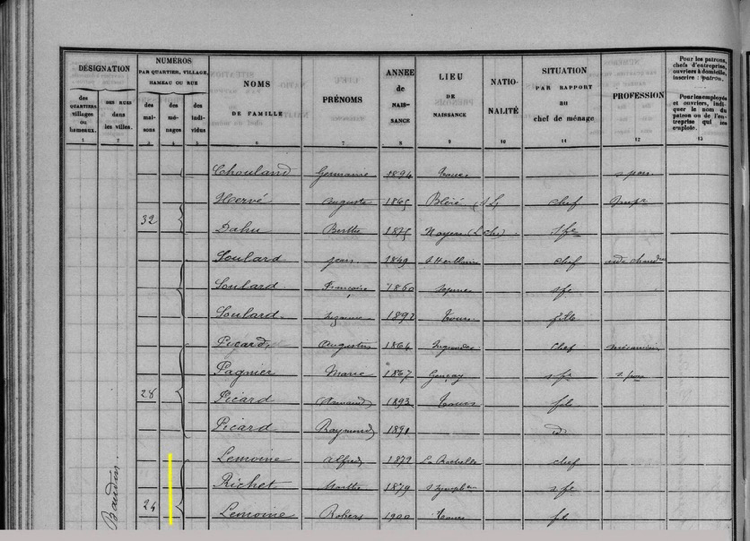 DÉSIGNATION
des QUARTIERS villages ou hameaux.
DES RUES dans les villes.
NUMÉROS
PAR QUARTIER, VILLAGE, HAMEAU OU RUE
des maisons
des ménages
des individus
NOMS DE FAMILLE
PRÉNOMS
ANNÉE de NAISSANCE
LIEU DE NAISSANCE
NATIONALITÉ
SITUATION PAR RAPPORT au chef de ménage
PROFESSION
Pour les patrons, chefs d'entreprise, ouvriers à domicile, inscrire : patron.
Pour les employés et ouvriers, indiquer le nom du patron ou de l'entreprise qui les emploie.
1 2 3 4 5 6 7 8 9 10 11 12 13
Chouland Germaine 1894 Tours
Hervé Auguste 1865 Bléré chef
32 Dahu Berthe 1875 Noyers
Soulard Jean 1849 chef
Soulard Françoise 1860
Soulard Suzanne 1892 Tours fille
Picard Augustin 1864 Ingrandes chef mécanicien
Pagnier Marie 1867
28 Picard Armand 1893 Tours fils
Picard Raymond id
Lemoine Alfred 1872 La Rochelle chef
Richet Marthe 1879
24 Lemoine Robert 1900 Tours
Baudin